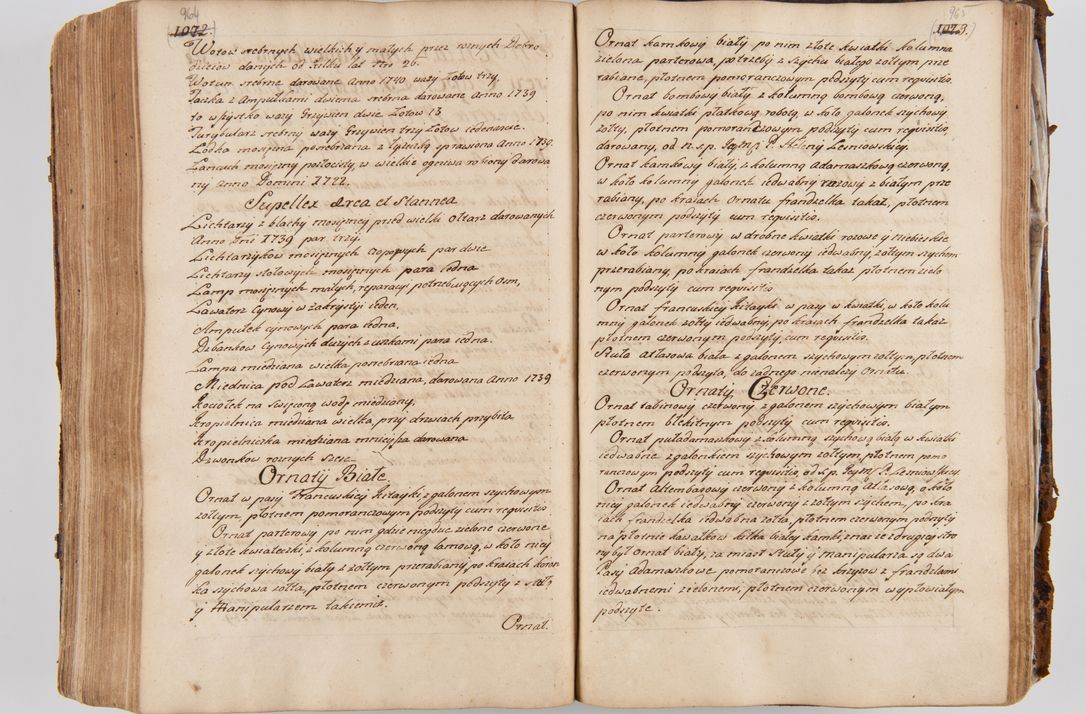 964
(1072.)
Wotow srebrnych wielkich y małych przez roznych Dobro
dzieiow danych od kilku lat Nro 26.
Wotum srebrne darowane Anno 1740 wazy Łotow trzy.
Taczka z Ampułkami dwiema srebrna darowane Anno 1739
to wszystko wazy Grzywien dwie Łotow 13
Turybularz srebrny wazy Grzywien trzy Łotow iedenascie.
Łodka mosięzna posrebrzana z łyszką sprawiona Anno 1739.
Łancuch mosięzny pozłocisty, w wielkie ogniwa robiony darowa
ny Anno Domini 1722.
Supellex Ærea et Stannea
Lichtarzy z blachy mosięzney przed wielki Ołtarz darowanych
Anno Dni 1739 par trzy.
Lichtarzykow mosięznych par dwie
Lichtarzy stołowych mosięznych para iedna
Lamp mosięznych małych, reparacyi potrzebuiących osm,
Lawaterz Cynowy w zakrystyi ieden,
Ampułek cynowych para iedna,
Dzbankow Cynowych duzych z uszkami para iedna.
Lampa miedziana wielka posrebrzana iedna
Miednica pod Lawaterz miedziana, darowana Anno 1739
Kociołek na Swięconą wodę miedziany,
Kropielnica miedziana wielka, przy drzwiach przybita
Kropielniczka miedziana mnieysza darowana
Dzwonkow roznych Szesc
Ornaty Białe
Ornat w pasy Francuskiey Kitayki z galonem szychowym
zołtym płotnem pomoranczowym podszyty cum requisitis
Ornat parterowy po nim gdzie niegdzie zielone czerwone
y złote kwiateczki, z kolumną czerwoną lamową, w koło niey
galonek szychowy biały z zołtym przerabiany, po kraiach koron
ka szychowa zołta, płotnem czerwonym podszyty z stułą
y Manipularzem takiemiz.
Ornat.
965
(1073.)
Ornat kamkowy biały po nim złote kwiatki kolumna
zielona parterowa, potrzeby z szychu białego zołtym prze
rabiane, płotnem pomoranczowym podszyty cum requisitis.
Ornat bombowy biały, z kolumną bombową czerwoną,
po nim kwiatki płatkową robotą, w koło galonek szychowy
zołty, płotnem pomoranczowym podszyty cum requisitis
darowany, od n. s.p. Jeymci P. Heleny Lesniowskiey.
Ornat kamkowy biały, z kolumną Adamaszkową czerwoną,
w koło kolumny galonek iedwabny rozowy z białym prze
rabiany, po kraiach Ornatu frandzelka takaz, płotnem
czerwonym podszyty cum requisitis.
Ornat parterowy w drobne kwiatki rozowe y niebieskie
w koło kolumny galonek czerwony iedwabny, zołtym szychem
przerabiany, po kraiach frandzelka takaz płotnem zielo
nym podszyty cum requisitis.
Ornat francuskiey Kitayki w pasy w kwiatki, w koło kolu
mny galonek zołty iedwabny, po kraiach frandzelka takaz
płotnem czerwonym podszyty, cum requisitis.
Stuła Atłasowa biała z galonem szychowym zołtym, płotnem
czerwonym podszyta, do zadnego nienalezy Ornatu.
Ornaty Czerwone.
Ornat tabinowy czerwony z galonem szychowym białym
płotnem błękitnym podszyty cum requisitis.
Ornat puładamaszkowy z kolumną szychową białą w kwiatki
iedwabne z galonkiem szychowym zołtym, płotnem pomo
ranczowym podszyty cum requisitis, od s.p. Jeymci P. Lesniowskiey.
Ornat Altembasowy czerwony z kolumną Atłasową, około
niey galonek iedwabny czerwony z zołtym szychem, po kra
iach frandzelka iedwabna zołta, płotnem czerwonym podszyty
na płotnie kawałkow kilka białey kamki, znac ze z drugiey stro
ny był Ornat biały, za miast Stuły y manipularza są dwa
Pasy Adamaszkowe pomoranczowe bez krzyzow z frandzlami
iedwabnemi zielonemi, płotnem czerwonym wypłowiałym
podszyte.